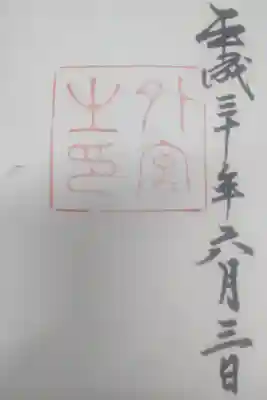 平成三十年六月三日
外宮之印